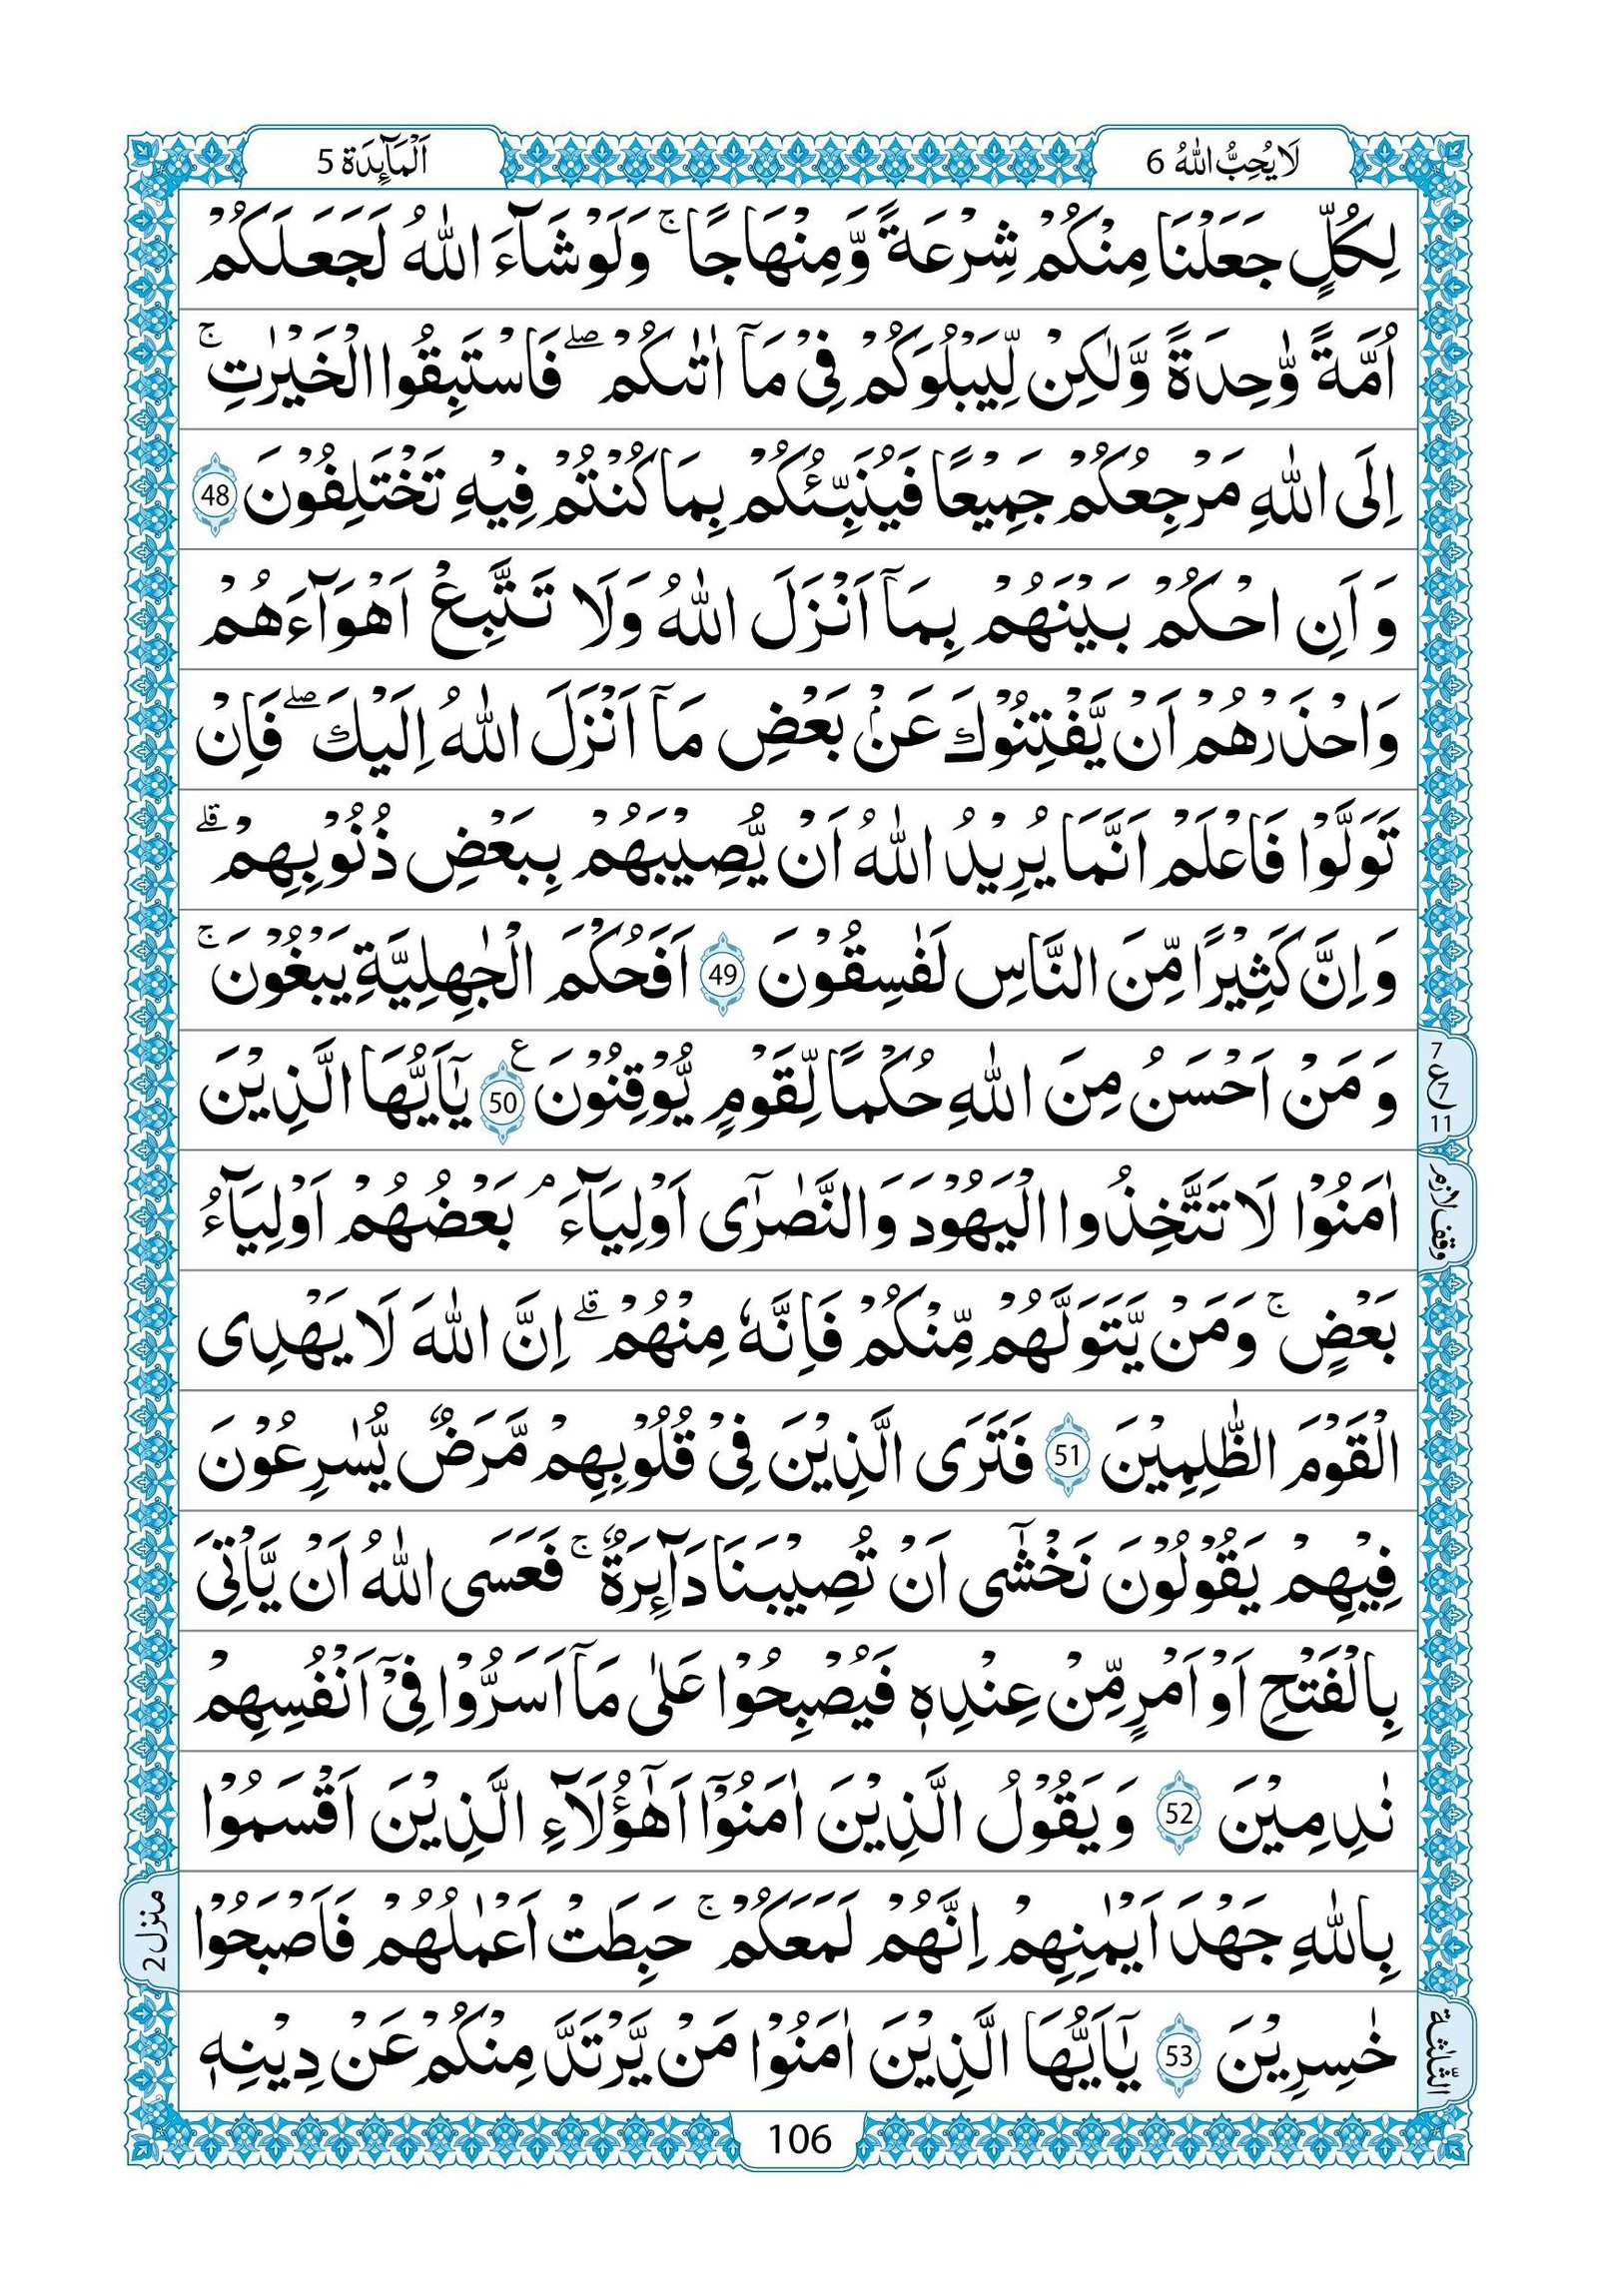 لَا يُحِبُّ اللّٰهُ 6
اَلْمَآئِدَة 5
لِكُلٍّ جَعَلْنَا مِنْكُمْ شِرْعَةً وَّمِنْهَاجًا ۚ وَلَوْ شَآءَ اللّٰهُ لَجَعَلَكُمْ
اُمَّةً وّٰحِدَةً وَّلٰكِنْ لِّيَبْلُوَكُمْ فِىْ مَآ اٰتٰىكُمْ ۖ فَاسْتَبِقُوا الْخَيْرٰتِ ۚ
اِلَى اللّٰهِ مَرْجِعُكُمْ جَمِيْعًا فَيُنَبِّئُكُمْ بِمَا كُنْتُمْ فِيْهِ تَخْتَلِفُوْنَ 48
وَ اَنِ احْكُمْ بَيْنَهُمْ بِمَآ اَنْزَلَ اللّٰهُ وَلَا تَتَّبِعْ اَهْوَآءَهُمْ
وَاحْذَرْهُمْ اَنْ يَّفْتِنُوْكَ عَنْۢ بَعْضِ مَآ اَنْزَلَ اللّٰهُ اِلَيْكَ ۖ فَاِنْ
تَوَلَّوْا فَاعْلَمْ اَنَّمَا يُرِيْدُ اللّٰهُ اَنْ يُّصِيْبَهُمْ بِبَعْضِ ذُنُوْبِهِمْ ۗ
وَاِنَّ كَثِيْرًا مِّنَ النَّاسِ لَفٰسِقُوْنَ 49 اَفَحُكْمَ الْجٰهِلِيَّةِ يَبْغُوْنَ ۚ
وَ مَنْ اَحْسَنُ مِنَ اللّٰهِ حُكْمًا لِّقَوْمٍ يُّوْقِنُوْنَ ع 50 يٰٓاَيُّهَا الَّذِيْنَ
7 ع 7 11
اٰمَنُوْا لَا تَتَّخِذُوا الْيَهُوْدَ وَالنَّصٰرٰٓى اَوْلِيَآءَ ۘ بَعْضُهُمْ اَوْلِيَآءُ
وقف لازم
بَعْضٍ ۚ وَمَنْ يَّتَوَلَّهُمْ مِّنْكُمْ فَاِنَّهٗ مِنْهُمْ ۗ اِنَّ اللّٰهَ لَا يَهْدِى
الْقَوْمَ الظّٰلِمِيْنَ 51 فَتَرَى الَّذِيْنَ فِىْ قُلُوْبِهِمْ مَّرَضٌ يُّسٰرِعُوْنَ
فِيْهِمْ يَقُوْلُوْنَ نَخْشٰٓى اَنْ تُصِيْبَنَا دَآئِرَةٌ ۚ فَعَسَى اللّٰهُ اَنْ يَّاْتِىَ
بِالْفَتْحِ اَوْ اَمْرٍ مِّنْ عِنْدِهٖ فَيُصْبِحُوْا عَلٰى مَآ اَسَرُّوْا فِىْٓ اَنْفُسِهِمْ
نٰدِمِيْنَ 52 وَيَقُوْلُ الَّذِيْنَ اٰمَنُوْٓا اَهٰٓؤُلَآءِ الَّذِيْنَ اَقْسَمُوْا
بِاللّٰهِ جَهْدَ اَيْمٰنِهِمْ اِنَّهُمْ لَمَعَكُمْ ۚ حَبِطَتْ اَعْمٰلُهُمْ فَاَصْبَحُوْا
منزل 2
خٰسِرِيْنَ 53 يٰٓاَيُّهَا الَّذِيْنَ اٰمَنُوْا مَنْ يَّرْتَدَّ مِنْكُمْ عَنْ دِيْنِهٖ
الثلثة
106